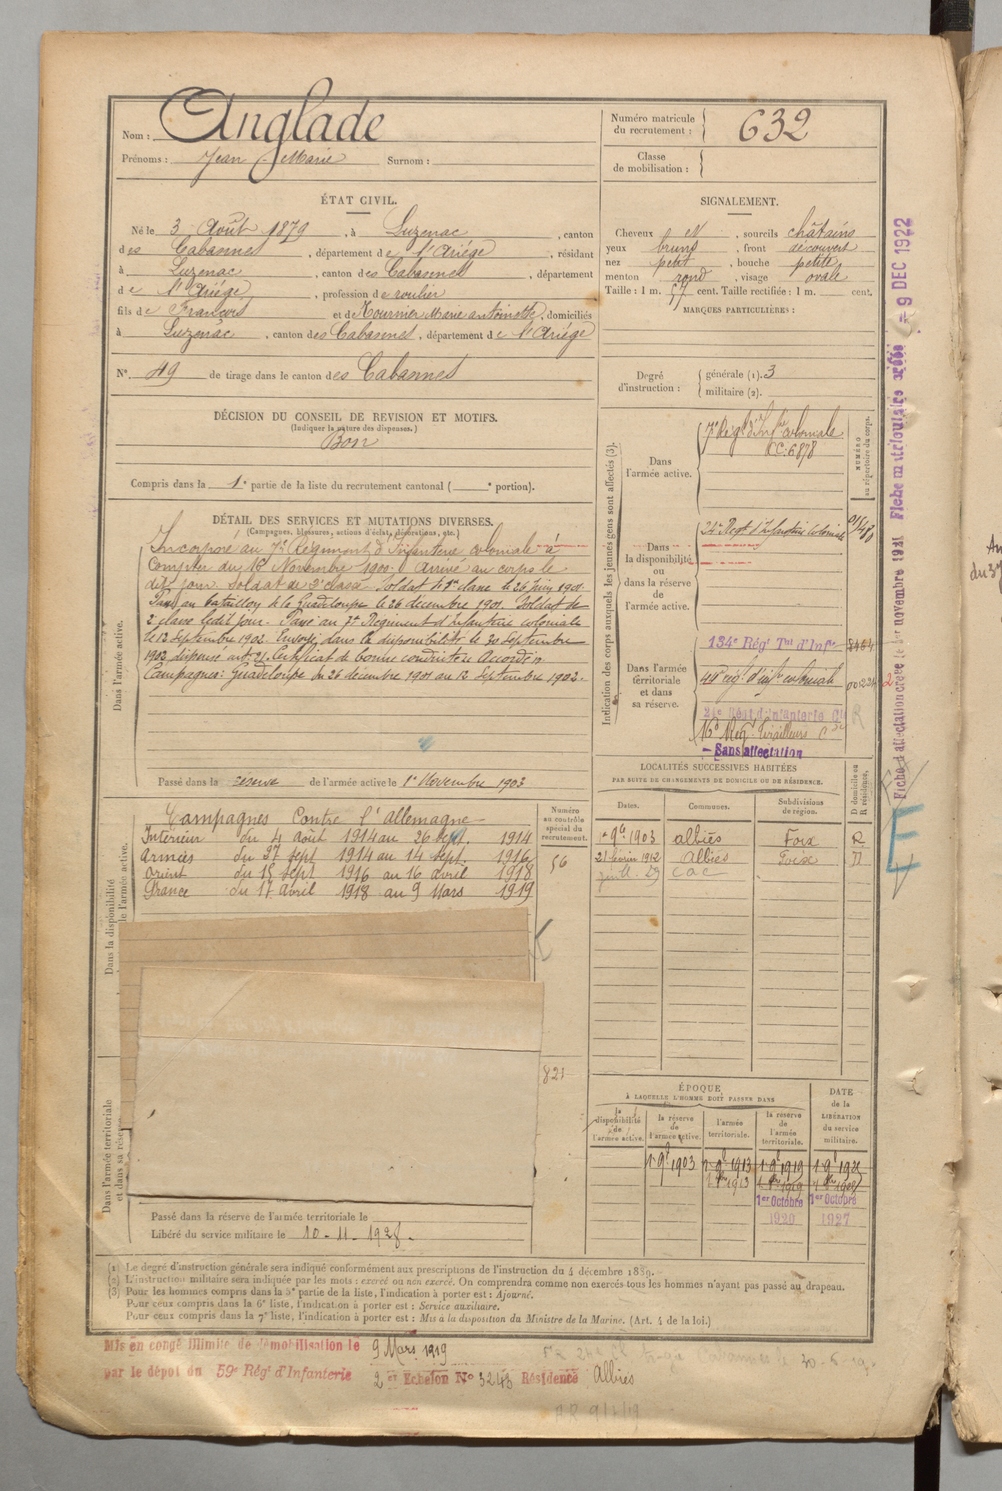 Nom : Anglade
Prénoms : Jean Marie Surnom :
Numéro matricule du recrutement : 632
Classe de mobilisation :
ÉTAT CIVIL.
Né le 3 Août 1879, à Luzenac, canton
des Cabannes, département de l'Ariège, résidant
à Luzenac, canton des Cabannes, département
de l'Ariège, profession de roulier
fils de François et de Fournier Marie antoinette, domiciliés
à Luzenac, canton des Cabannes, département de l'Ariège
N° 49 de tirage dans le canton des Cabannes
SIGNALEMENT.
Cheveux et, sourcils châtains
yeux bruns, front découvert
nez petit, bouche petite
menton rond, visage ovale
Taille : 1 m. 57 cent. Taille rectifiée : 1 m. cent.
MARQUES PARTICULIÈRES :
Degré d'instruction : générale (1). 3
militaire (2).
DÉCISION DU CONSEIL DE REVISION ET MOTIFS.
(Indiquer la nature des dispenses.)
Bon
Compris dans la 1e partie de la liste du recrutement cantonal ( e portion).
DÉTAIL DES SERVICES ET MUTATIONS DIVERSES.
(Campagnes, blessures, actions d'éclat, décorations, etc.)
Incorporé au 7e Régiment d'Infanterie coloniale à
compter du 16 Novembre 1900. Arrivé au corps le
dit jour. Soldat de 2e classe. Soldat de 1re classe le 26 juin 1901.
Passé au bataillon de la Guadeloupe le 26 décembre 1901. Soldat de
2e classe ledit jour. Passé au 7e Régiment d'infanterie coloniale
le 13 Septembre 1903. Envoyé dans la disponibilité le 30 Septembre
1903 dispensé art. 21. Certificat de bonne conduite Accordé.
Campagnes : Guadeloupe du 26 décembre 1901 au 12 Septembre 1903.
Dans l'armée active.
Passé dans la réserve de l'armée active le 1er Novembre 1903
Indication des corps auxquels les jeunes gens sont affectés (3).
NUMÉRO au répertoire du corps.
Dans l'armée active.
7e Régt d'Infie coloniale
CC: 6878
Dans la disponibilité ou dans la réserve de l'armée active.
24e Régt d'Infanterie Coloniale
Dans l'armée territoriale et dans sa réserve.
134e Régt Tal d'Infie
24e Régt d'Infanterie Cle
16e Rég. Tirailleurs
Sans affectation
LOCALITÉS SUCCESSIVES HABITÉES
PAR SUITE DE CHANGEMENTS DE DOMICILE OU DE RÉSIDENCE.
Dates. Communes. Subdivisions de région. D domicile ou R résidence.
1903 albiès Foix R
21 février 1912 Albiès Foix D
juill. 29 Cac
Campagnes Contre l'Allemagne
Intérieur du 4 Août 1914 au 26 sept. 1914
Armées du 27 sept 1914 au 14 sept. 1916
Orient du 15 sept 1916 au 16 avril 1918
France du 17 avril 1918 au 9 Mars 1919
Numéro au contrôle spécial du recrutement.
56
821
Dans la disponibilité
de l'armée active.
Dans l'armée territoriale
ÉPOQUE
À LAQUELLE L'HOMME DOIT PASSER DANS
la disponibilité de l'armée active.
la réserve de l'armée active.
l'armée territoriale.
la réserve de l'armée territoriale.
DATE de la LIBÉRATION du service militaire.
1er Octobre 1920
1er Octobre 1927
Passé dans la réserve de l'armée territoriale le
Libéré du service militaire le 10-11-1928.
(1) Le degré d'instruction générale sera indiqué conformément aux prescriptions de l'instruction du 4 décembre 1889.
(2) L'instruction militaire sera indiquée par les mots : exercé ou non exercé. On comprendra comme non exercés tous les hommes n'ayant pas passé au drapeau.
(3) Pour les hommes compris dans la 5e partie de la liste, l'indication à porter est : Ajourné.
Pour ceux compris dans la 6e liste, l'indication à porter est : Service auxiliaire.
Pour ceux compris dans la 7e liste, l'indication à porter est : Mis à la disposition du Ministre de la Marine. (Art. 4 de la loi.)
Mis en congé illimité de démobilisation le 9 Mars 1919
par le dépôt du 59e Rég d'Infanterie 2e Echelon N° 3243 Résidence Albiès
Fiche d'affectation créée le 1er novembre 1921 Fiche matriculaire créée - 9 DEC 1922
E